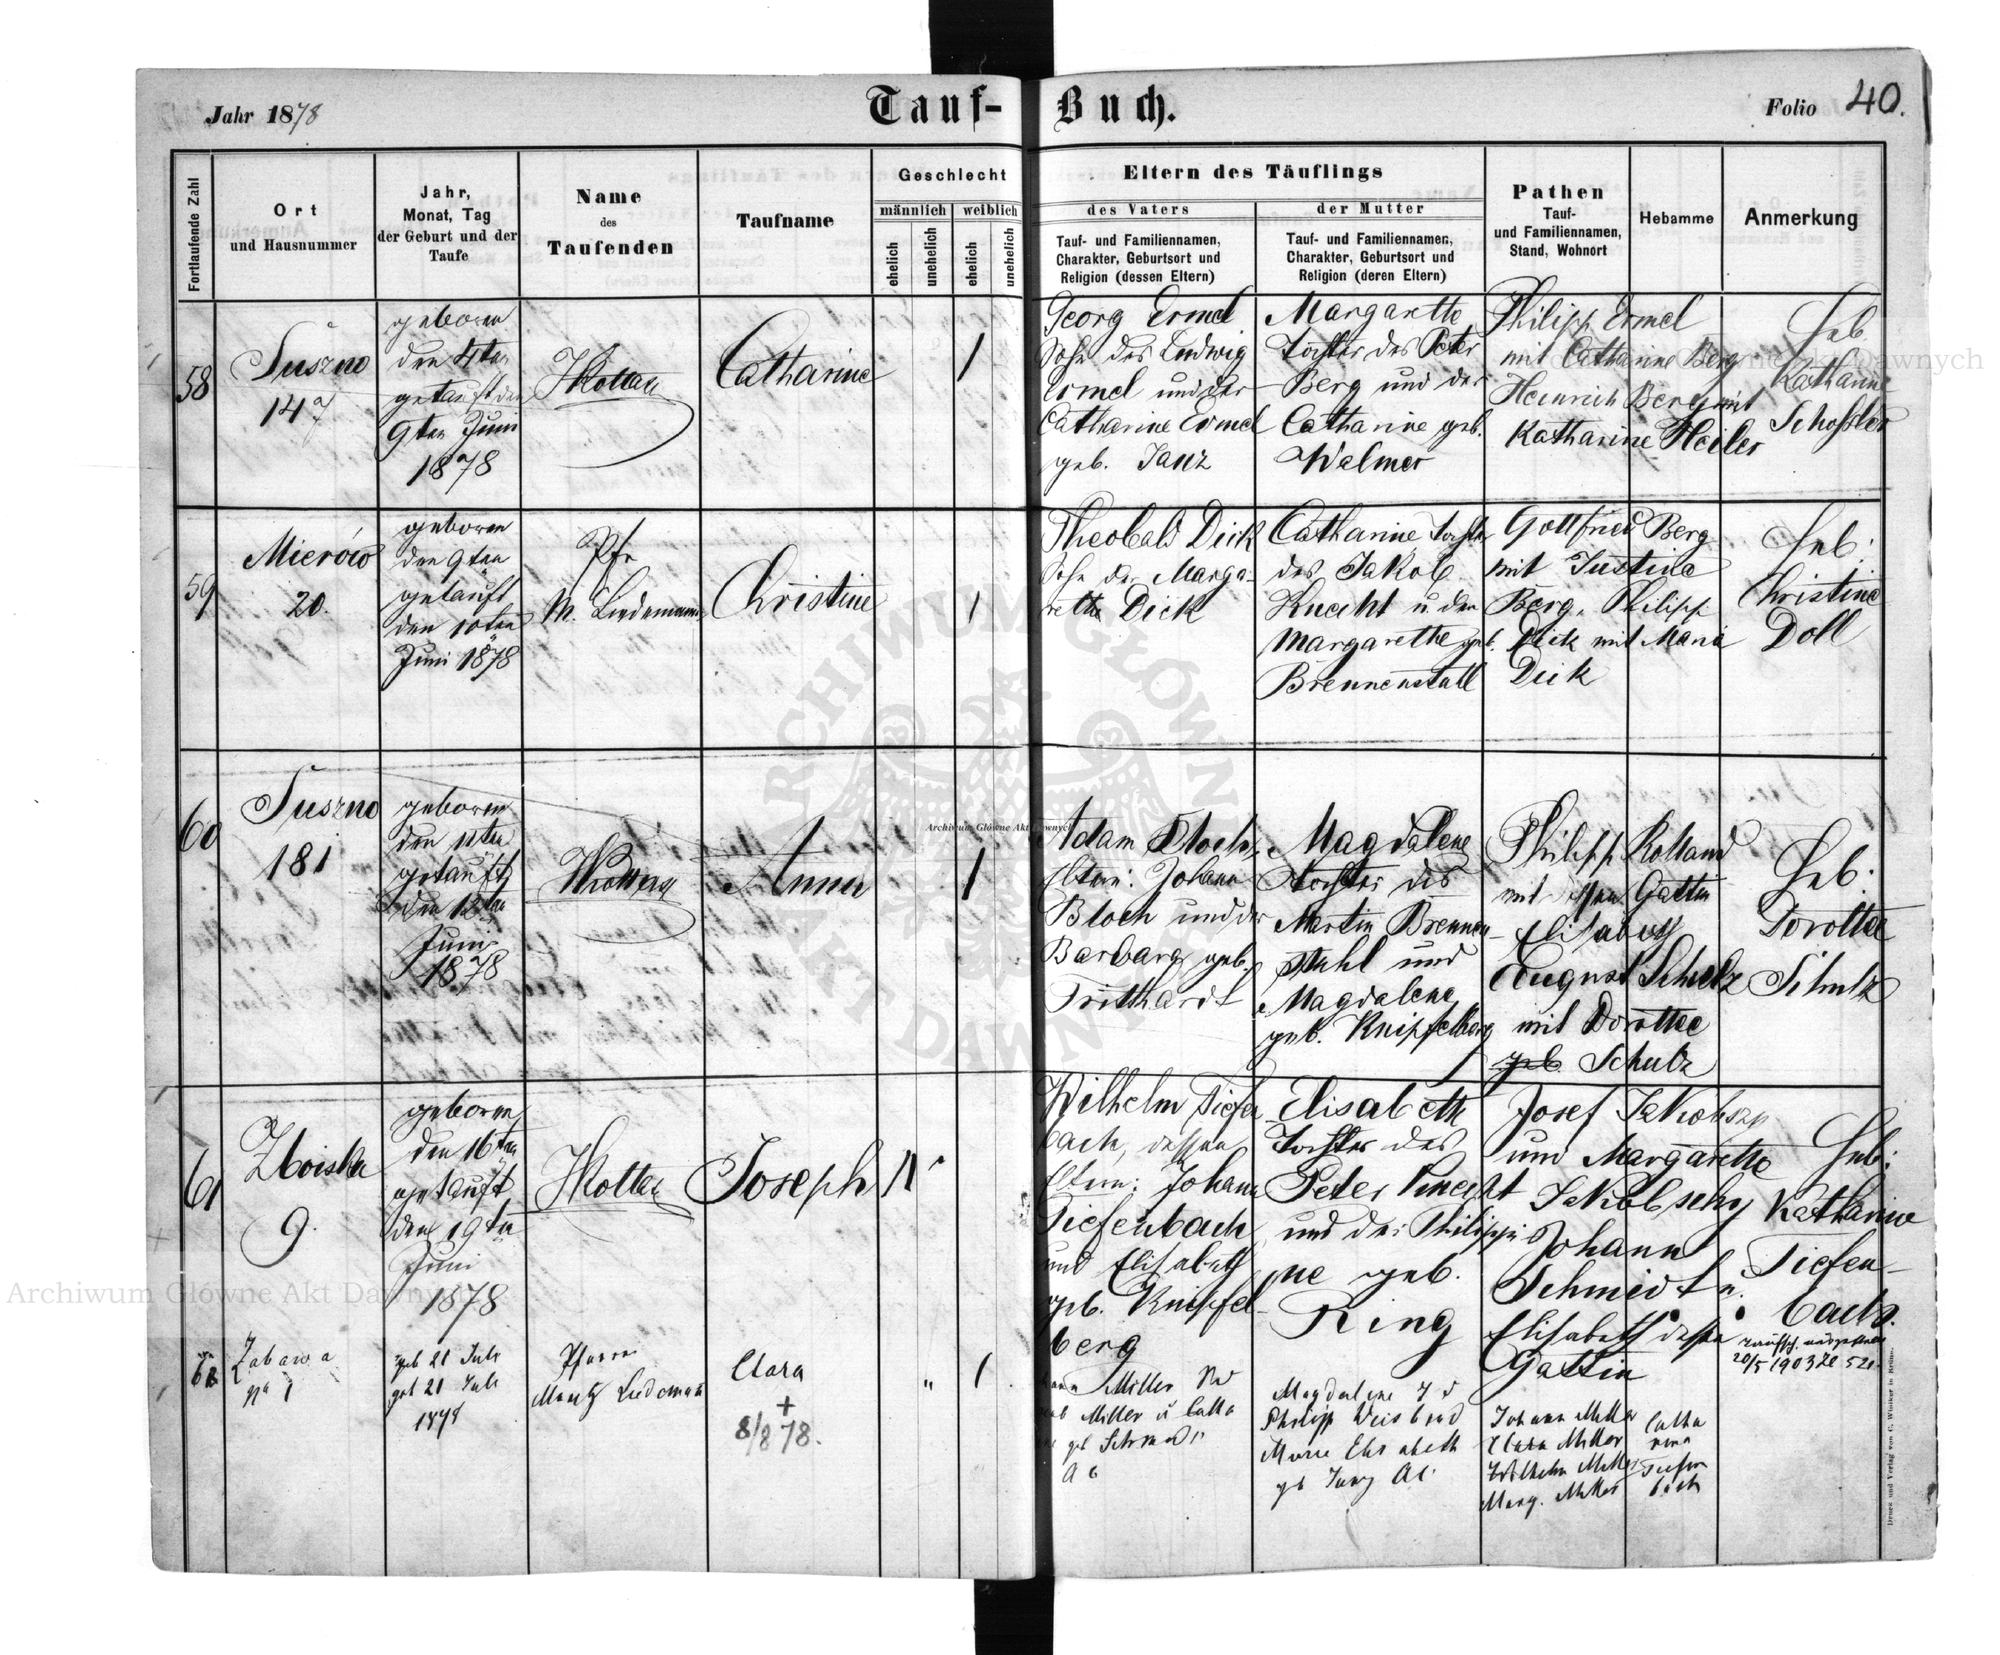 Jahr 1878
Tauf-Buch.
Folio 40.
Fortlaufende Zahl
Ort
und Hausnummer
Jahr,
Monat, Tag
der Geburt und der
Taufe
Name
des
Taufenden
Taufname
Geschlecht
männlich weiblich
ehelich
unehelich
ehelich
unehelich
Eltern des Täuflings
des Vaters
Tauf- und Familiennamen,
Charakter, Geburtsort und
Religion (dessen Eltern)
der Mutter
Tauf- und Familiennamen,
Charakter, Geburtsort und
Religion (deren Eltern)
Pathen
Tauf-
und Familiennamen,
Stand, Wohnort
Hebamme
Anmerkung
58
Suszno
147
geboren
den 4ten
getauft den
9ten Juni
1878
Catharine
1
Georg Ermel
Sohn des Ludwig
Ermel und der
Catharine Ermel
geb. Janz
Margarethe
Tochter des Peter
Berg und der
Catharine geb.
Walmer
Philipp Ermel
mit Catharine Berg
Heinrich Berg mit
Katharine Heiler
Heb.
Katharine
Schossler
59
Mierów
20.
geboren
den 9ten
getauft
den 10ten
Juni 1878
Pfr
Christine
1
Theobald Dick
Sohn der Marga-
retha Dick
Catharine Tochter
des Jakob
Knecht u der
Margarethe geb.
Brennenstall
Gottfried Berg
mit Justina
Berg, Philipp
Dick mit Maria
Dick
Heb:
Christine
Doll
60
Suszno
181
geboren
den 11ten
getauft
den 12ten
Juni
1878
Anna
1
Adam Bloch,
Eltern: Johann
Bloch und der
Barbara geb.
Tritthardt
Magdalene
Tochter des
Martin Brennen-
stuhl und
Magdalena
geb. Knipfelberg
Philipp Rolland
mit dessen Gattin
Elisabeth
August Schulz
mit Dorothee
geb Schulz
Heb:
Dorothee
Schulz
61
Zboiska
9.
geboren
den 16ten
getauft
den 19ten
Juni
1878
Joseph
1
Wilhelm Tiefen
bach, dessen
Eltern: Johann
Tiefenbach
und Elisabeth
geb. Knipfel-
berg
Elisabeth
Tochter des
Peter Knecht
und der Philippi
ne geb.
Ring
Josef
und Margarethe
Johann
Schmidt u.
Elisabeth dessen
Gattin
Heb:
Katharine
Tiefen-
bach.
20/5 1903
62
Zabawa
No 1
geb 21 Juli
get 21 Juli
1878
Pfarrer
Clara
+
8/8 78.
"
1
Miller
Miller u Catha
geb
A C
Magdalene
Philipp Weisbrod
Marie Elisabeth
gb Jung AC.
Johann Miller
Clara Miller
Wilhelm Miller
Marg. Miller
Catha
rina
Tiefen
bach
Druck und Verlag von C. Winiker in Brünn.
ARCHIWUM GŁÓWNE AKT DAWNYCH
Archiwum Główne Akt Dawnych
Archiwum Główne Akt Dawnych
Archiwum Główne Akt Dawnych